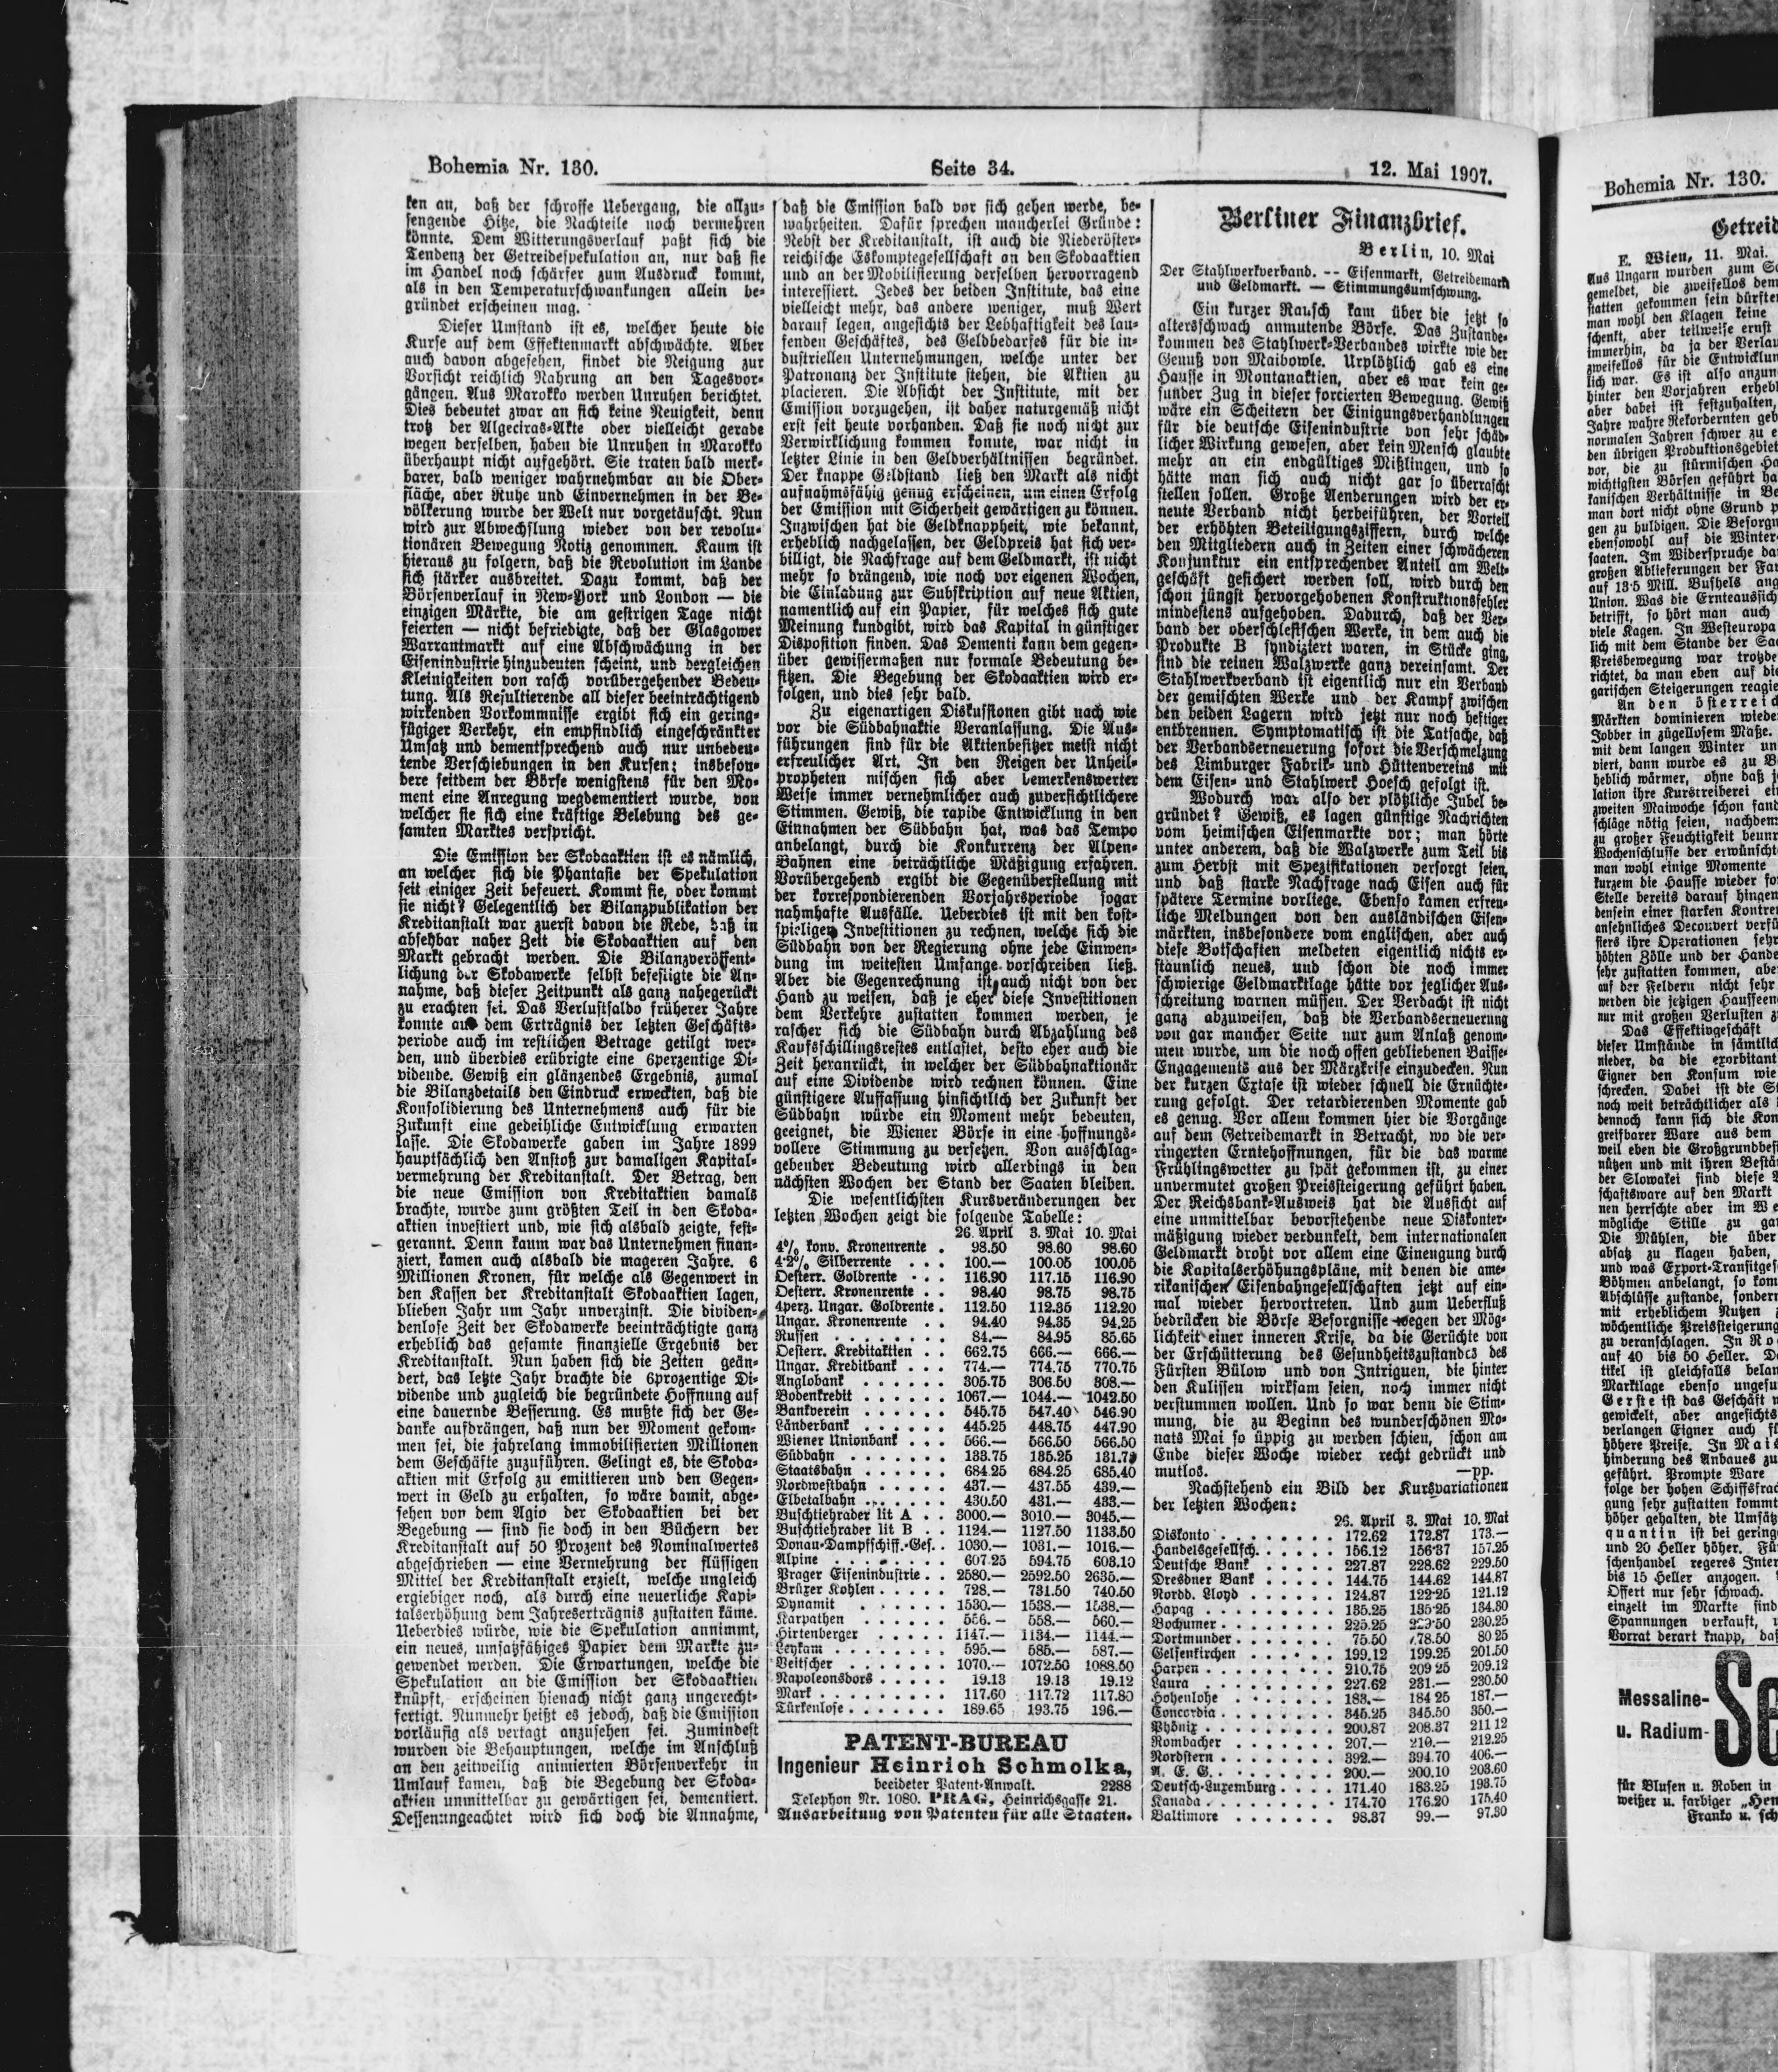 Bohemia Nr. 130.
Seite 34.
12. Mai 1907.
ken an, daß der schroffe Uebergang, die allzu-
sengende Hitze, die Nachteile noch vermehren
könnte. Dem Witterungsverlauf paßt sich die
Tendenz der Getreidespekulation an, nur daß sie
im Handel noch schärfer zum Ausdruck kommt,
als in den Temperaturschwankungen allein be-
gründet erscheinen mag.
Dieser Umstand ist es, welcher heute die
Kurse auf dem Effektenmarkt abschwächte. Aber
auch davon abgesehen, findet die Neigung zur
Vorsicht reichlich Nahrung an den Tagesvor-
gängen. Aus Marokko werden Unruhen berichtet.
Dies bedeutet zwar an sich keine Neuigkeit, denn
trotz der Algeciras-Akte oder vielleicht gerade
wegen derselben, haben die Unruhen in Marokko
überhaupt nicht aufgehört. Sie traten bald merk-
barer, bald weniger wahrnehmbar an die Ober-
fläche, aber Ruhe und Einvernehmen in der Be-
völkerung wurde der Welt nur vorgetäuscht. Nun
wird zur Abwechslung wieder von der revolu-
tionären Bewegung Notiz genommen. Kaum ist
hieraus zu folgern, daß die Revolution im Lande
sich stärker ausbreitet. Dazu kommt, daß der
Börsenverlauf in New-York und London — die
einzigen Märkte, die am gestrigen Tage nicht
feierten — nicht befriedigte, daß der Glasgower
Warrantmarkt auf eine Abschwächung in der
Eisenindustrie hinzudeuten scheint, und dergleichen
Kleinigkeiten von rasch vorübergehender Bedeu-
tung. Als Resultierende all dieser beeinträchtigend
wirkenden Vorkommnisse ergibt sich ein gering-
fügiger Verkehr, ein empfindlich eingeschränkter
Umsatz und dementsprechend auch nur unbedeu-
tende Verschiebungen in den Kursen; insbeson-
dere seitdem der Börse wenigstens für den Mo-
ment eine Anregung wegdementiert wurde, von
welcher sie sich eine kräftige Belebung des ge-
samten Marktes verspricht.
Die Emission der Skodaaktien ist es nämlich,
an welcher sich die Phantasie der Spekulation
seit einiger Zeit befeuert. Kommt sie, oder kommt
sie nicht? Gelegentlich der Bilanzpublikation der
Kreditanstalt war zuerst davon die Rede, daß in
absehbar naher Zeit die Skodaaktien auf den
Markt gebracht werden. Die Bilanzveröffent-
lichung der Skodawerke selbst befestigte die An-
nahme, daß dieser Zeitpunkt als ganz nahegerückt
zu erachten sei. Das Verlustsaldo früherer Jahre
konnte aus dem Erträgnis der letzten Geschäfts-
periode auch im restlichen Betrage getilgt wer-
den, und überdies erübrigte eine 6perzentige Di-
vidende. Gewiß ein glänzendes Ergebnis, zumal
die Bilanzdetails den Eindruck erweckten, daß die
Konsolidierung des Unternehmens auch für die
Zukunft eine gedeihliche Entwicklung erwarten
lasse. Die Skodawerke gaben im Jahre 1899
hauptsächlich den Anstoß zur damaligen Kapital-
vermehrung der Kreditanstalt. Der Betrag, den
die neue Emission von Kreditaktien damals
brachte, wurde zum größten Teil in den Skoda-
aktien investiert und, wie sich alsbald zeigte, fest-
gerannt. Denn kaum war das Unternehmen finan-
ziert, kamen auch alsbald die mageren Jahre. 6
Millionen Kronen, für welche als Gegenwert in
den Kassen der Kreditanstalt Skodaaktien lagen,
blieben Jahr um Jahr unverzinst. Die dividen-
denlose Zeit der Skodawerke beeinträchtigte ganz
erheblich das gesamte finanzielle Ergebnis der
Kreditanstalt. Nun haben sich die Zeiten geän-
dert, das letzte Jahr brachte die 6prozentige Di-
vidende und zugleich die begründete Hoffnung auf
eine dauernde Besserung. Es mußte sich der Ge-
danke aufdrängen, daß nun der Moment gekom-
men sei, die jahrelang immobilisierten Millionen
dem Geschäfte zuzuführen. Gelingt es, die Skoda-
aktien mit Erfolg zu emittieren und den Gegen-
wert in Geld zu erhalten, so wäre damit, abge-
sehen von dem Agio der Skodaaktien bei der
Begebung — sind sie doch in den Büchern der
Kreditanstalt auf 50 Prozent des Nominalwertes
abgeschrieben — eine Vermehrung der flüssigen
Mittel der Kreditanstalt erzielt, welche ungleich
ergiebiger noch, als durch eine neuerliche Kapi-
talserhöhung dem Jahreserträgnis zustatten käme.
Ueberdies würde, wie die Spekulation annimmt,
ein neues, umsatzfähiges Papier dem Markte zu-
gewendet werden. Die Erwartungen, welche die
Spekulation an die Emission der Skodaaktien
knüpft, erscheinen hienach nicht ganz ungerecht-
fertigt. Nunmehr heißt es jedoch, daß die Emission
vorläufig als vertagt anzusehen sei. Zumindest
wurden die Behauptungen, welche im Anschluß
an den zeitweilig animierten Börsenverkehr in
Umlauf kamen, daß die Begebung der Skoda-
aktien unmittelbar zu gewärtigen sei, dementiert.
Dessenungeachtet wird sich doch die Annahme,
daß die Emission bald vor sich gehen werde, be-
wahrheiten. Dafür sprechen mancherlei Gründe:
Nebst der Kreditanstalt, ist auch die Niederöster-
reichische Eskomptegesellschaft an den Skodaaktien
und an der Mobilisierung derselben hervorragend
interessiert. Jedes der beiden Institute, das eine
vielleicht mehr, das andere weniger, muß Wert
darauf legen, angesichts der Lebhaftigkeit des lau-
fenden Geschäftes, des Geldbedarfes für die in-
dustriellen Unternehmungen, welche unter der
Patronanz der Institute stehen, die Aktien zu
placieren. Die Absicht der Institute, mit der
Emission vorzugehen, ist daher naturgemäß nicht
erst seit heute vorhanden. Daß sie noch nicht zur
Verwirklichung kommen konnte, war nicht in
letzter Linie in den Geldverhältnissen begründet.
Der knappe Geldstand ließ den Markt als nicht
aufnahmsfähig genug erscheinen, um einen Erfolg
der Emission mit Sicherheit gewärtigen zu können.
Inzwischen hat die Geldknappheit, wie bekannt,
erheblich nachgelassen, der Geldpreis hat sich ver-
billigt, die Nachfrage auf dem Geldmarkt, ist nicht
mehr so drängend, wie noch vor eigenen Wochen,
die Einladung zur Subskription auf neue Aktien,
namentlich auf ein Papier, für welches sich gute
Meinung kundgibt, wird das Kapital in günstiger
Disposition finden. Das Dementi kann dem gegen-
über gewissermaßen nur formale Bedeutung be-
sitzen. Die Begebung der Skodaaktien wird er-
folgen, und dies sehr bald.
Zu eigenartigen Diskussionen gibt nach wie
vor die Südbahnaktie Veranlassung. Die Aus-
führungen sind für die Aktienbesitzer meist nicht
erfreulicher Art. In den Reigen der Unheil-
propheten mischen sich aber bemerkenswerter
Weise immer vernehmlicher auch zuversichtlichere
Stimmen. Gewiß, die rapide Entwicklung in den
Einnahmen der Südbahn hat, was das Tempo
anbelangt, durch die Konkurrenz der Alpen-
Bahnen eine beträchtliche Mäßigung erfahren.
Vorübergehend ergibt die Gegenüberstellung mit
der korrespondierenden Vorjahrsperiode sogar
nahmhafte Ausfälle. Ueberdies ist mit den kost-
spieligen Investitionen zu rechnen, welche sich die
Südbahn von der Regierung ohne jede Einwen-
dung im weitesten Umfange vorschreiben ließ.
Aber die Gegenrechnung ist auch nicht von der
Hand zu weisen, daß je eher diese Investitionen
dem Verkehre zustatten kommen werden, je
rascher sich die Südbahn durch Abzahlung des
Kaufsschillingsrestes entlastet, desto eher auch die
Zeit heranrückt, in welcher der Südbahnaktionär
auf eine Dividende wird rechnen können. Eine
günstigere Auffassung hinsichtlich der Zukunft der
Südbahn würde ein Moment mehr bedeuten,
geeignet, die Wiener Börse in eine hoffnungs-
vollere Stimmung zu versetzen. Von ausschlag-
gebender Bedeutung wird allerdings in den
nächsten Wochen der Stand der Saaten bleiben.
Die wesentlichsten Kursveränderungen der
letzten Wochen zeigt die folgende Tabelle:
26. April 3. Mai 10. Mai
4% konv. Kronenrente . 98.50 98.60 98.60
4·2% Silberrente . . . 100.— 100.05 100.05
Oesterr. Goldrente . . . 116.90 117.15 116.90
Oesterr. Kronenrente . . 98.40 98.75 98.75
4perz. Ungar. Goldrente . 112.50 112.35 112.20
Ungar. Kronenrente . . 94.40 94.35 94.25
Russen . . . . . . . . 84.— 84.95 85.65
Oesterr. Kreditaktien . . 662.75 666.— 666.—
Ungar. Kreditbank . . . 774.— 774.75 770.75
Anglobank . . . . . . 305.75 306.50 308.—
Bodenkredit . . . . . . 1067.— 1044.— 1042.50
Bankverein . . . . . . 545.75 547.40 546.90
Länderbank . . . . . . 445.25 448.75 447.90
Wiener Unionbank . . . 566.— 566.50 566.50
Südbahn . . . . . . . 133.75 135.25 131.75
Staatsbahn . . . . . . 684.25 684.25 685.40
Nordwestbahn . . . . . 437.— 437.55 439.—
Elbetalbahn . . . . . . 430.50 431.— 433.—
Buschtiehrader lit A . . 3000.— 3010.— 3045.—
Buschtiehrader lit B . . 1124.— 1127.50 1133.50
Donau-Dampfschiff.-Ges. . 1030.— 1031.— 1016.—
Alpine . . . . . . . 607.25 594.75 603.10
Prager Eisenindustrie . . 2580.— 2592.50 2635.—
Brüxer Kohlen . . . . . 728.— 731.50 740.50
Dynamit . . . . . . 1530.— 1538.— 1538.—
Karpathen . . . . . . 556.— 558.— 560.—
Hirtenberger . . . . . 1147.— 1134.— 1144.—
Leykam . . . . . . . 595.— 585.— 587.—
Veitscher . . . . . . 1070.— 1072.50 1088.50
Napoleonsdors . . . . . 19.13 19.13 19.12
Mark . . . . . . . . . 117.60 117.72 117.80
Türkenlose . . . . . . . 189.65 193.75 196.—
PATENT-BUREAU
Ingenieur Heinrich Schmolka,
beeideter Patent-Anwalt. 2288
Telephon Nr. 1080. PRAG, Heinrichsgasse 21.
Ausarbeitung von Patenten für alle Staaten.
Berliner Finanzbrief.
Berlin, 10. Mai
Der Stahlwerkverband. -- Eisenmarkt, Getreidemarkt
und Geldmarkt. — Stimmungsumschwung.
Ein kurzer Rausch kam über die jetzt so
altersschwach anmutende Börse. Das Zustande-
kommen des Stahlwerk-Verbandes wirkte wie der
Genuß von Maibowle. Urplötzlich gab es eine
Hausse in Montanaktien, aber es war kein ge-
sunder Zug in dieser forcierten Bewegung. Gewiß
wäre ein Scheitern der Einigungsverhandlungen
für die deutsche Eisenindustrie von sehr schäd-
licher Wirkung gewesen, aber kein Mensch glaubte
mehr an ein endgültiges Mißlingen, und so
hätte man sich auch nicht gar so überrascht
stellen sollen. Große Aenderungen wird der er-
neute Verband nicht herbeiführen, der Vorteil
der erhöhten Beteiligungsziffern, durch welche
den Mitgliedern auch in Zeiten einer schwächeren
Konjunktur ein entsprechender Anteil am Welt-
geschäft gesichert werden soll, wird durch den
schon jüngst hervorgehobenen Konstruktionsfehler
mindestens aufgehoben. Dadurch, daß der Ver-
band der oberschlesischen Werke, in dem auch die
Produkte B syndiziert waren, in Stücke ging,
sind die reinen Walzwerke ganz vereinsamt. Der
Stahlwerkverband ist eigentlich nur ein Verband
der gemischten Werke und der Kampf zwischen
den beiden Lagern wird jetzt nur noch heftiger
entbrennen. Symptomatisch ist die Tatsache, daß
der Verbandserneuerung sofort die Verschmelzung
des Limburger Fabrik- und Hüttenvereins mit
dem Eisen- und Stahlwerk Hoesch gefolgt ist.
Wodurch war also der plötzliche Jubel be-
gründet? Gewiß, es lagen günstige Nachrichten
vom heimischen Eisenmarkte vor; man hörte
unter anderem, daß die Walzwerke zum Teil bis
zum Herbst mit Spezifikationen versorgt seien,
und daß starke Nachfrage nach Eisen auch für
spätere Termine vorliege. Ebenso kamen erfreu-
liche Meldungen von den ausländischen Eisen-
märkten, insbesondere vom englischen, aber auch
diese Botschaften meldeten eigentlich nichts er-
staunlich neues, und schon die noch immer
schwierige Geldmarktlage hätte vor jeglicher Aus-
schreitung warnen müssen. Der Verdacht ist nicht
ganz abzuweisen, daß die Verbandserneuerung
von gar mancher Seite nur zum Anlaß genom-
men wurde, um die noch offen gebliebenen Baisse-
Engagements aus der Märzkrise einzudecken. Nun
der kurzen Extase ist wieder schnell die Ernüchte-
rung gefolgt. Der retardierenden Momente gab
es genug. Vor allem kommen hier die Vorgänge
auf dem Getreidemarkt in Betracht, wo die ver-
ringerten Erntehoffnungen, für die das warme
Frühlingswetter zu spät gekommen ist, zu einer
unvermutet großen Preissteigerung geführt haben.
Der Reichsbank-Ausweis hat die Aussicht auf
eine unmittelbar bevorstehende neue Diskonter-
mäßigung wieder verdunkelt, dem internationalen
Geldmarkt droht vor allem eine Einengung durch
die Kapitalserhöhungspläne, mit denen die ame-
rikanischen Eisenbahngesellschaften jetzt auf ein-
mal wieder hervortreten. Und zum Ueberfluß
bedrücken die Börse Besorgnisse wegen der Mög-
lichkeit einer inneren Krise, da die Gerüchte von
der Erschütterung des Gesundheitszustandes des
Fürsten Bülow und von Intriguen, die hinter
den Kulissen wirksam seien, noch immer nicht
verstummen wollen. Und so war denn die Stim-
mung, die zu Beginn des wunderschönen Mo-
nats Mai so üppig zu werden schien, schon am
Ende dieser Woche wieder recht gedrückt und
mutlos. —pp.
Nachstehend ein Bild der Kursvariationen
der letzten Wochen:
26. April 3. Mai 10. Mai
Diskonto . . . . . . . . 172.62 172.87 173.—
Handelsgesellsch. . . . . . 156.12 156·37 157.25
Deutsche Bank . . . . . . 227.87 228.62 229.50
Dresdner Bank . . . . . 144.75 144.62 144.87
Nordd. Lloyd . . . . . . 124.87 122·25 121.12
Hapag . . . . . . . . . 135.25 135·25 134.30
Bochumer . . . . . . . 225.25 50 230.25
Dortmunder . . . . . . . 75.50 78.50 80 25
Gelsenkirchen . . . . . . 199.12 199.25 201.50
Harpen . . . . . . . . . 210.75 209 25 209.12
Laura . . . . . . . . . 227.62 231.— 230.50
Hohenlohe . . . . . . . 183.— 184 25 187.—
Concordia . . . . . . . . 345.25 345.50 350.—
Phönix . . . . . . . . . 200.87 208.37 211 12
Rombacher . . . . . . . 207.— 210.— 212.25
Nordstern . . . . . . . . 392.— 394.70 406.—
A. E. G. . . . . . . . . 200.— 200.10 203.60
Deutsch-Luxemburg . . . . 171.40 183.25 193.75
Kanada . . . . . . . . . 174.70 176.20 175.40
Baltimore . . . . . . . 98.37 99.— 97.30
Bohemia Nr. 130.
Getreid
E. Wien, 11. Mai.
Aus Ungarn wurden zum
gemeldet, die zweifellos dem
statten gekommen sein dürften
man wohl den Klagen keine
schenkt, aber teilweise ernst
immerhin, da ja der Verlau
zweifellos für die Entwicklun
lich war. Es ist also anzun
hinter den Vorjahren erhebl
aber dabei ist festzuhalten,
Jahre wahre Rekordernten geb
normalen Jahren schwer zu e
den übrigen Produktionsgebiet
vor, die zu stürmischen Ha
wichtigsten Börsen geführt ha
kanischen Verhältnisse in Be
man dort nicht ohne Grund p
gen zu huldigen. Die Besorgn
ebensowohl auf die Winter-
saaten. Im Widerspruche da
großen Ablieferungen der Far
auf 13·5 Mill. Bushels ang
Union. Was die Ernteaussich
betrifft, so hört man auch
viele Kagen. In Westeuropa
lich mit dem Stande der Saa
Preisbewegung war trotzde
richtet, da man eben auf die
garischen Steigerungen reagie
An den österreic
Märkten dominieren wiede
Jobber in zügellosem Maße.
mit dem langen Winter un
viert, dann wurde es zu B
heblich wärmer, ohne daß j
lation ihre Kurstreiberei ei
zweiten Maiwoche schon fand
schläge nötig seien, nachdem
zu großer Feuchtigkeit beunr
Wochenschlusse der erwünscht
man wohl einige Momente
kurzem die Hausse wieder fo
Stelle bereits darauf hingen
densein einer starken Kontrem
ansehnliches Decouvert verfü
siers ihre Operationen sehr
höhten Zölle und der Hande
sehr zustatten kommen, abe
auf der Feldern nicht sehr
werden die jetzigen Hausseen
nur mit großen Verlusten z
Das Effektivgeschäft
dieser Umstände in sämtlich
nieder, da die exorbitant
Eigner den Konsum wie
schrecken. Dabei ist die S
noch weit beträchtlicher als
dennoch kann sich die Kon
greifbarer Ware aus dem
weil eben die Großgrundbes
nützen und mit ihren Bestä
der Slowakei sind diese
schaftsware auf den Markt
nen herrschte aber im We
mögliche Stille zu gar
Die Mühlen, die über
absatz zu klagen haben,
und was Export-Transitges
Böhmen anbelangt, so kom
Abschlüsse zustande, sondern
mit erheblichem Nutzen
wöchentliche Preissteigerung
zu veranschlagen. In Ro
auf 40 bis 50 Heller. D
tikel ist gleichfalls belan
Marktlage ebenso ungesu
Gerste ist das Geschäft
gewickelt, aber angesichts
verlangen Eigner auch f
höhere Preise. In Mais
hinderung des Anbaues zu
geführt. Prompte Ware
folge der hohen Schiffsfrac
gung sehr zustatten kommt
höher gehalten, die Umsätz
quantin ist bei gering
und 20 Heller höher. Fü
schenhandel regeres Inter
bis 15 Heller anzogen.
Offert nur sehr schwach.
einzelt im Markte find
Spannungen verkauft,
Vorrat derart knapp, daß
Messaline-
u. Radium-
Se
für Blusen u. Roben in
weißer u. farbiger „Hen
Franko u. sch